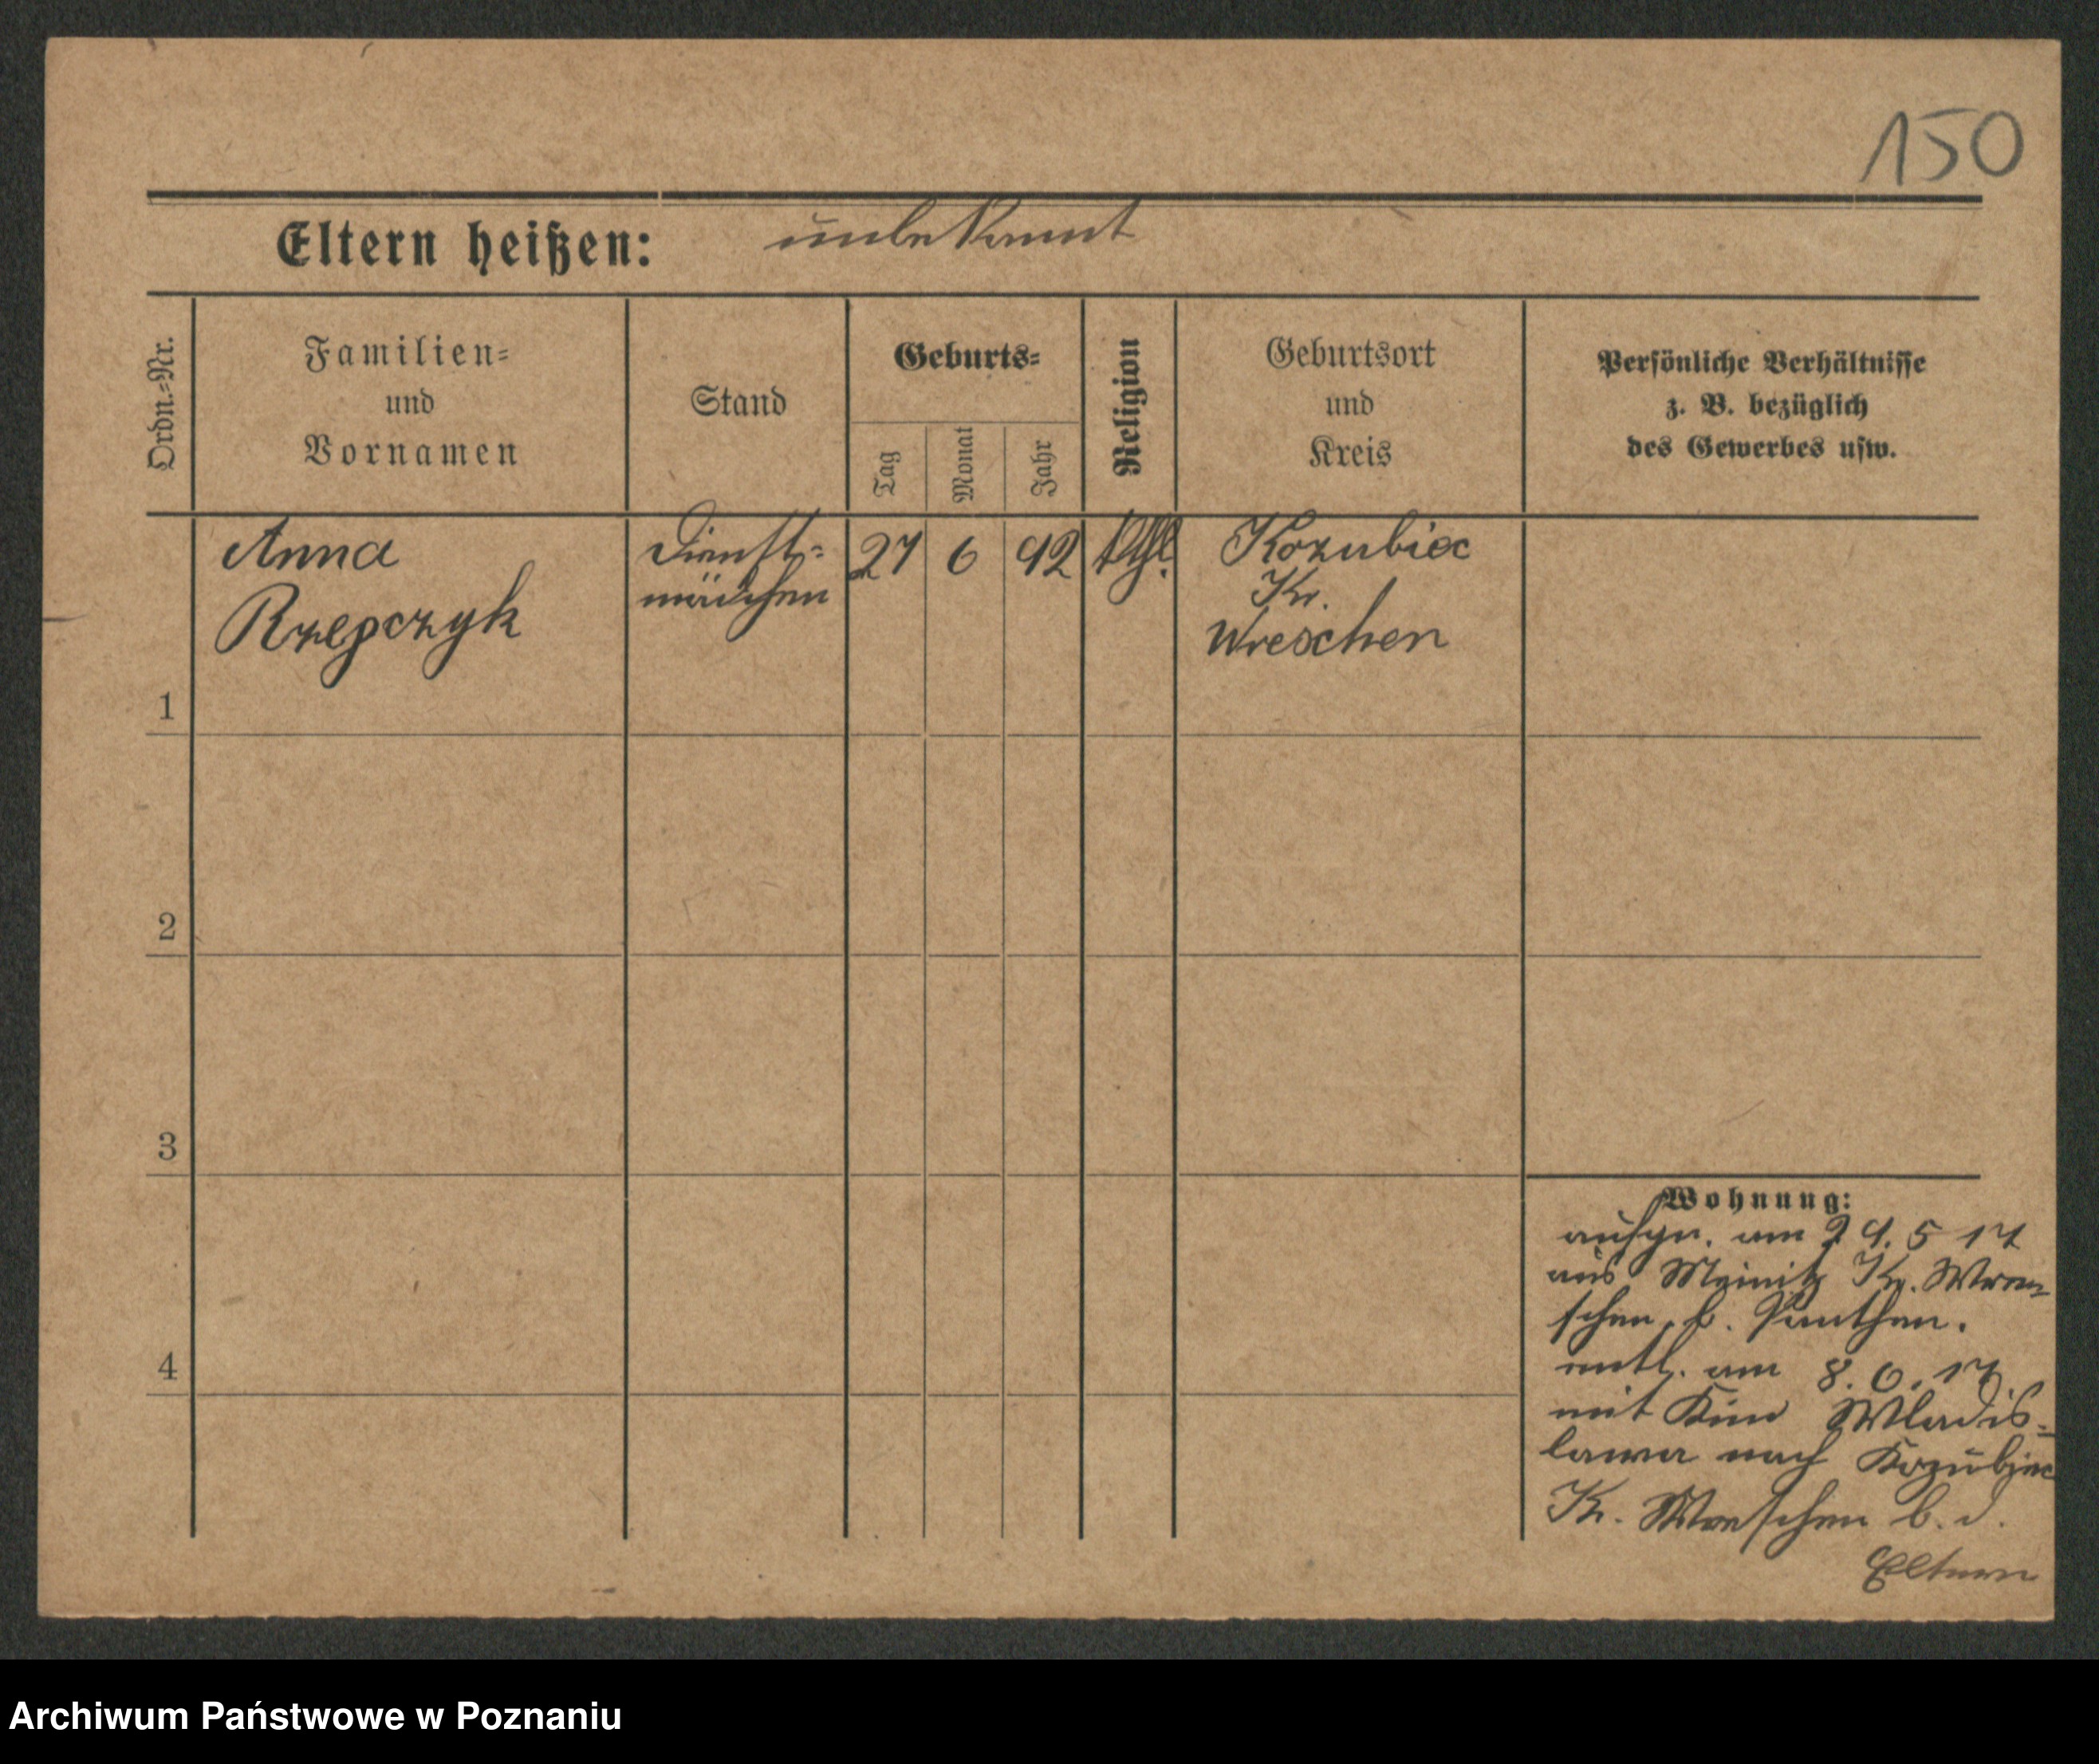 150
Eltern heißen: unbekannt
Ordn.-Nr.
Familien-
und
Vornamen
Stand
Geburts-
Tag
Monat
Jahr
Religion
Geburtsort
und
Kreis
Persönliche Verhältnisse
z. B. bezüglich
des Gewerbes usw.
1
Anna
Rzepczyk
Dienst-
mädchen
27 6 92 kth.
Kozubiec
Kr.
Wreschen
2
3
4
Wohnung:
am 29. 5 17
aus Kr. Wre-
schen, b.
entl. am 8. 6. 17
mit Kind Wladis-
lawa nach Kozubiec
Kr. Wreschen b. d.
Eltern
Archiwum Państwowe w Poznaniu